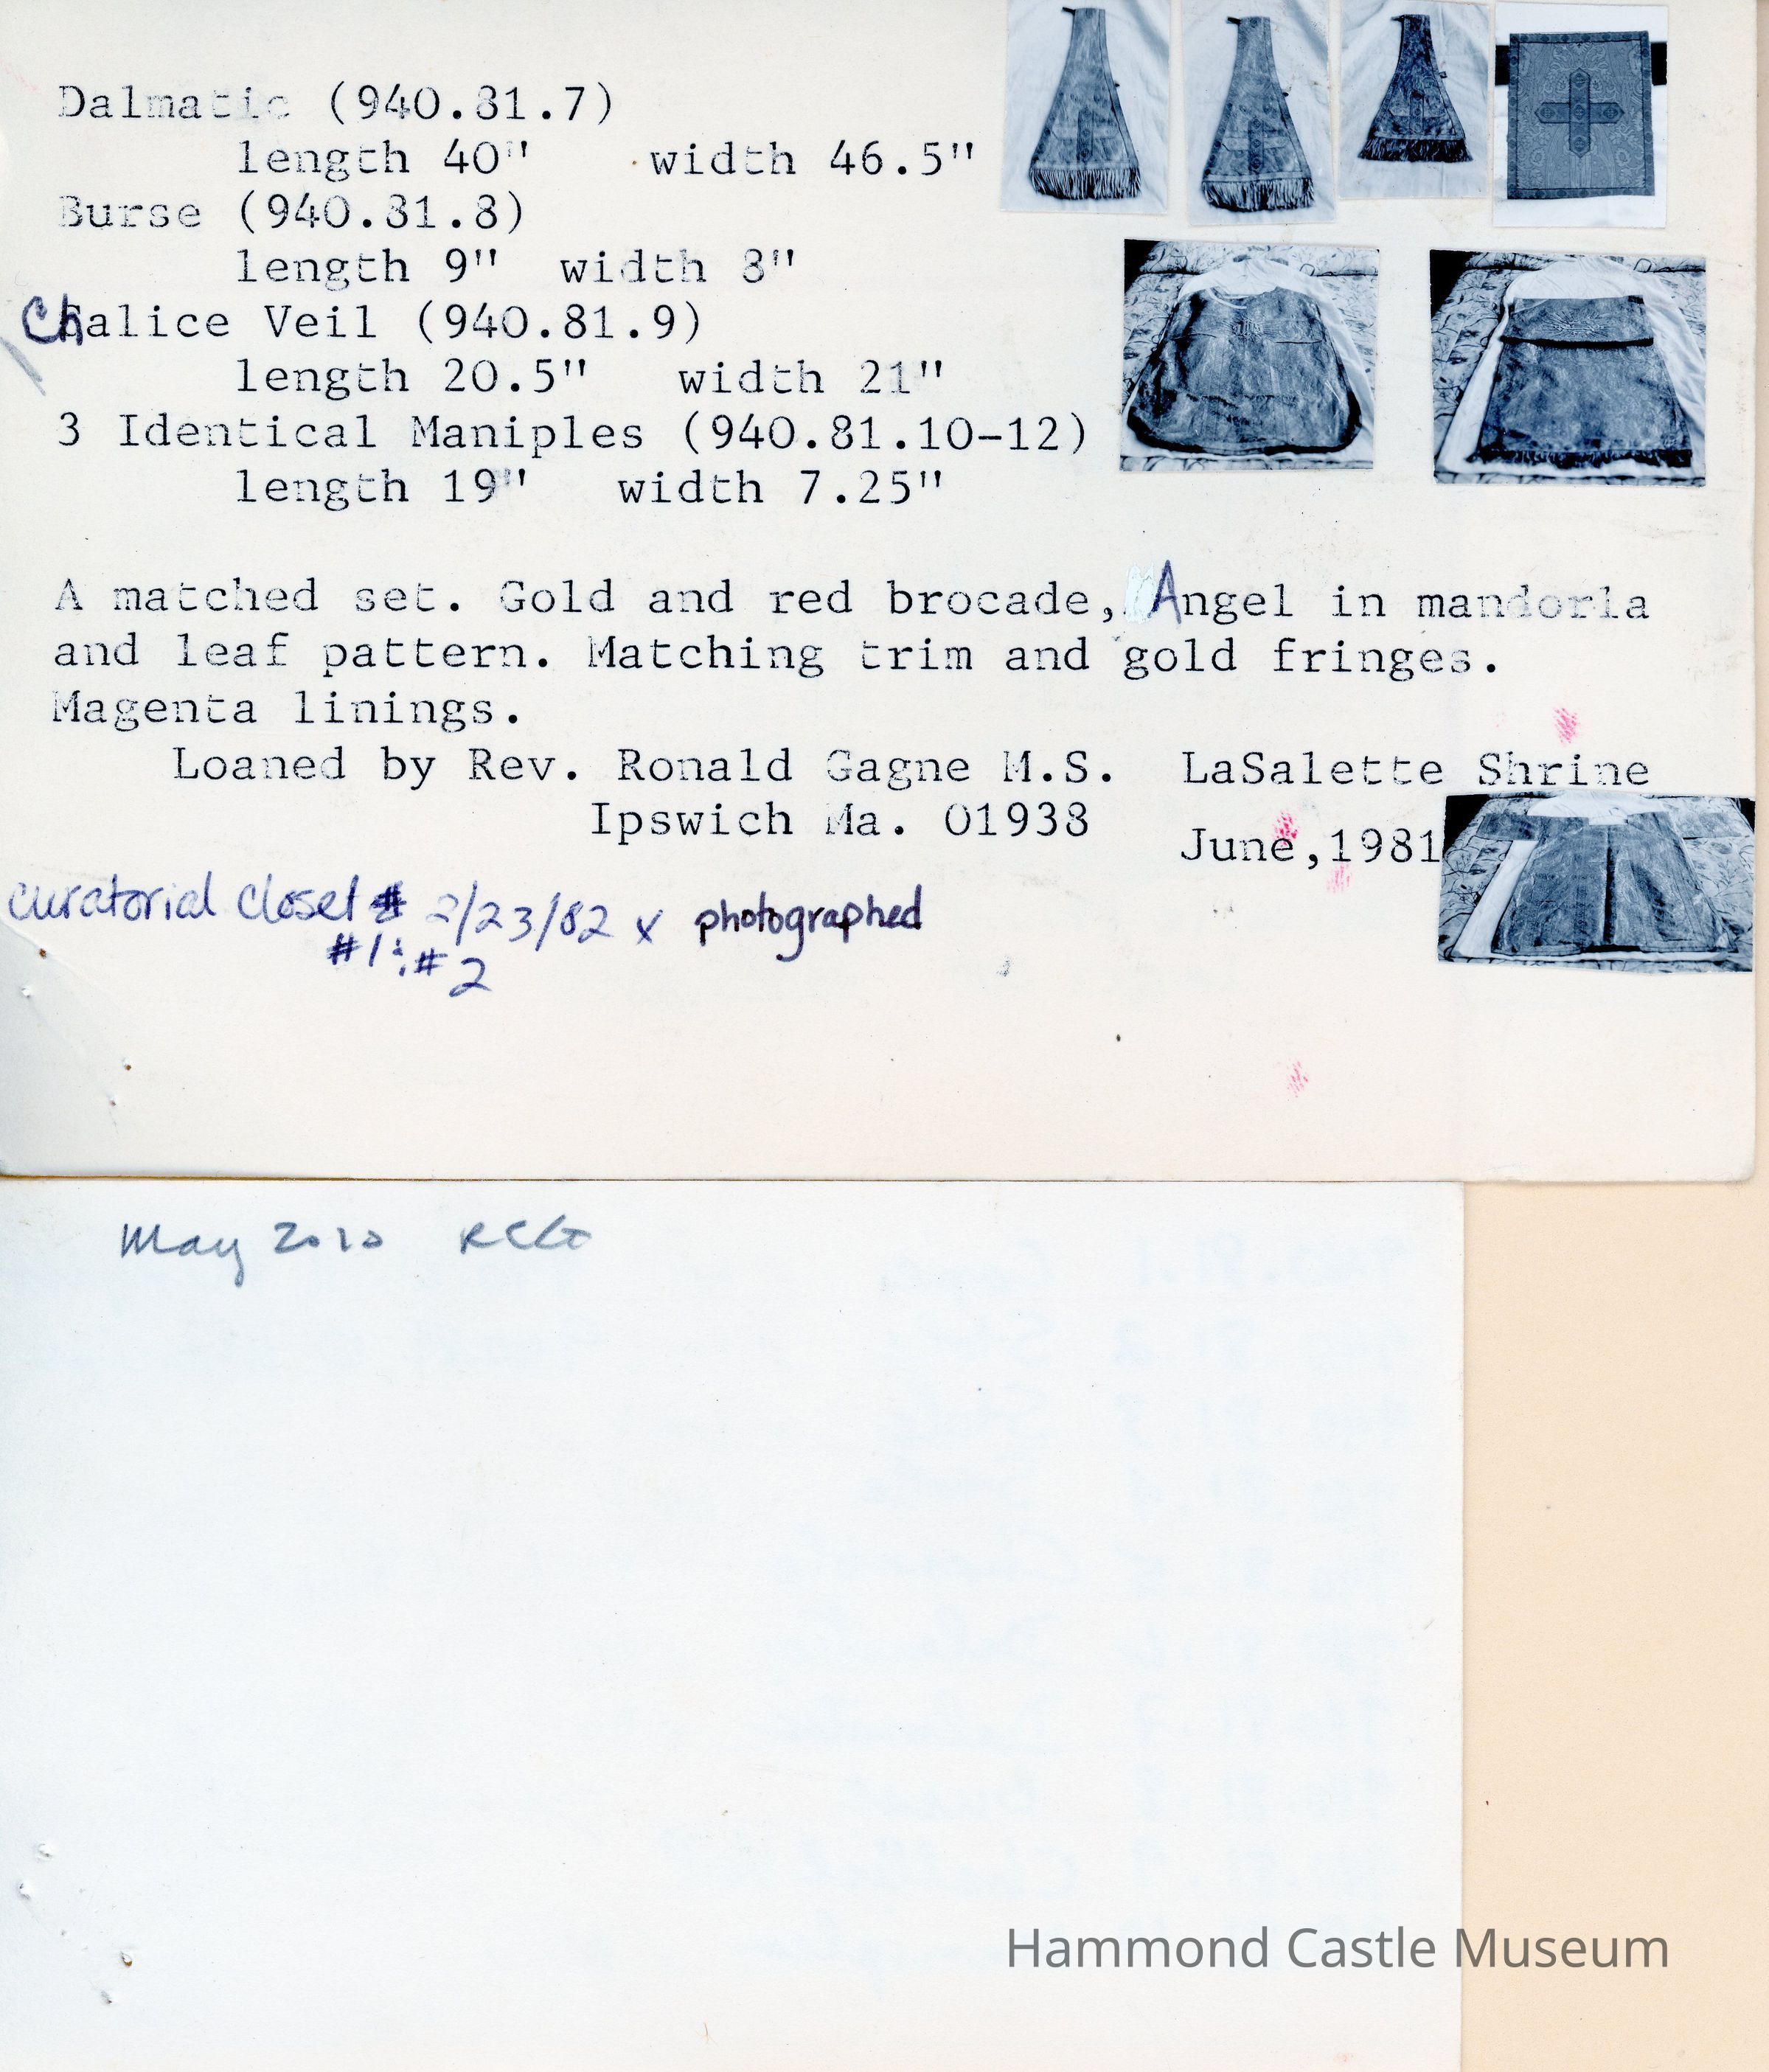 Dalmatic (940.81.7)
length 40" width 46.5"
Burse (940.81.8)
length 9" width 8"
Chalice Veil (940.81.9)
length 20.5" width 21"
3 Identical Maniples (940.81.10-12)
length 19" width 7.25"
A matched set. Gold and red brocade, Angel in mandorla
and leaf pattern. Matching trim and gold fringes.
Magenta linings.
Loaned by Rev. Ronald Gagne M.S. LaSalette Shrine
Ipswich Ma. 01938
June, 1981
curatorial closet # 2/23/82 x photographed
#1 : #2
May 2010 RCG
Hammond Castle Museum